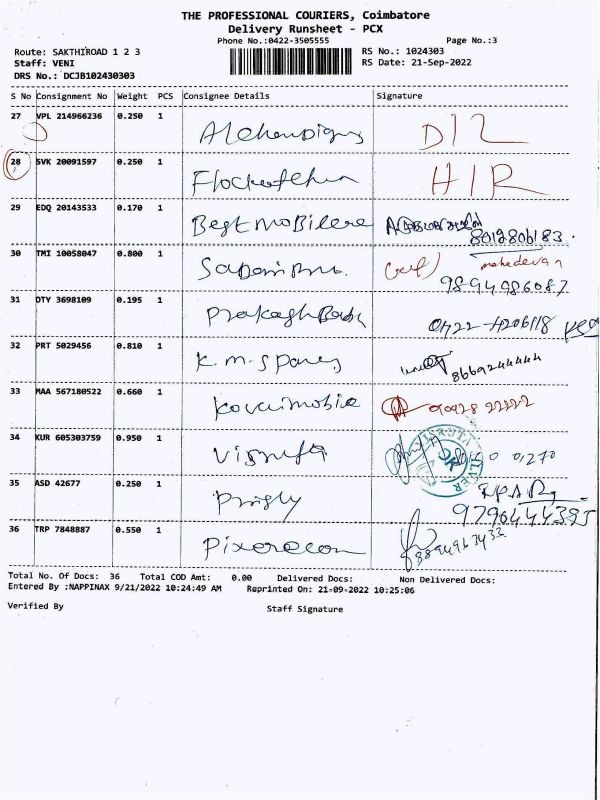 THE PROFESSIONAL COURIERS, Coimbatore
Delivery Runsheet - PCX
Phone No.:0422-3505555 Page No.:3
Route: SAKTHIROAD 1 2 3 RS No.: 1024303
Staff: VENI RS Date: 21-Sep-2022
DRS No.: DCJB102430303
S No Consignment No Weight PCS Consignee Details Signature
27 VPL 214966236 0.250 1 D/L
28 SVK 20091597 0.250 1 H/R
29 EDQ 20143533 0.170 1 Best mobilere 8012806183.
30 TMI 10058047 0.800 1 mahadevan
9894986087
31 OTY 3698109 0.195 1 Prakash Babu 0422-4206118
32 PRT 5029456 0.810 1 K.m-Spares 8669244444
33 MAA 567180522 0.660 1 Kovaimobile 22222
34 KUR 605303759 0.950 1 0,270
35 ASD 42677 0.250 1
9790444395
36 TRP 7848887 0.550 1
Total No. Of Docs: 36 Total COD Amt: 0.00 Delivered Docs: Non Delivered Docs:
Entered By :NAPPINAX 9/21/2022 10:24:49 AM Reprinted On: 21-09-2022 10:25:06
Verified By Staff Signature